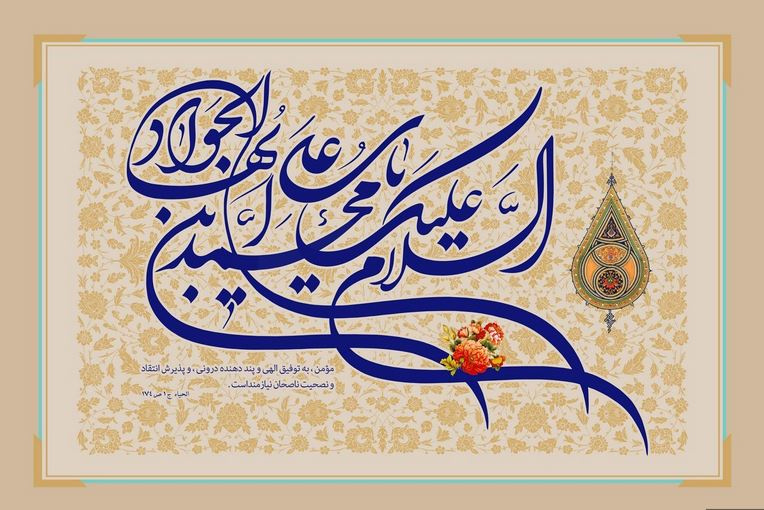 السلام علیک یا محمد بن علی ایها الجواد
مؤمن ، به توفیق الهی و پند دهنده درونی ، و پذیرش انتقاد
و نصحیت ناصحان نیازمند است .
الحیاه ج ۱ ص ۱۷۴